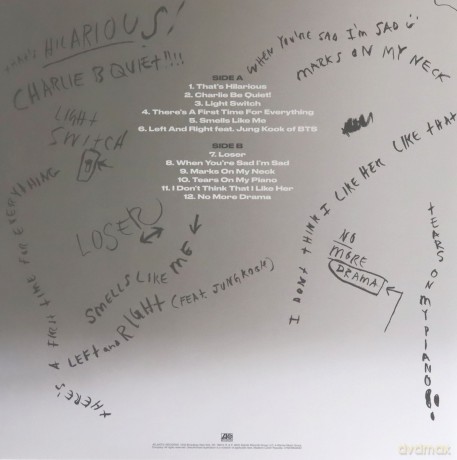 THAT'S HILARIOUS!
CHARLIE B QUIET!!!
LIGHT
SWITCH
WHEN YOU'RE SAD I'M SAD
MARKS ON MY NECK
SIDE A
1. That's Hilarious
2. Charlie Be Quiet!
3. Light Switch
4. There's A First Time For Everything
5. Smells Like Me
6. Left And Right feat. Jung Kook of BTS
SIDE B
7. Loser
8. When You're Sad I'm Sad
9. Marks On My Neck
10. Tears On My Piano
11. I Don't Think That I Like Her
12. No More Drama
LOSER
THERE'S A FIRST TIME FOR EVERYTHING
SMELLS LIKE ME
LEFT and RIGHT (FEAT. JUNGKOOK)
I DON'T THINK I LIKE HER LIKE THAT
NO
MORE
DRAMA
TEARS ON MY PIANO
dvdmax